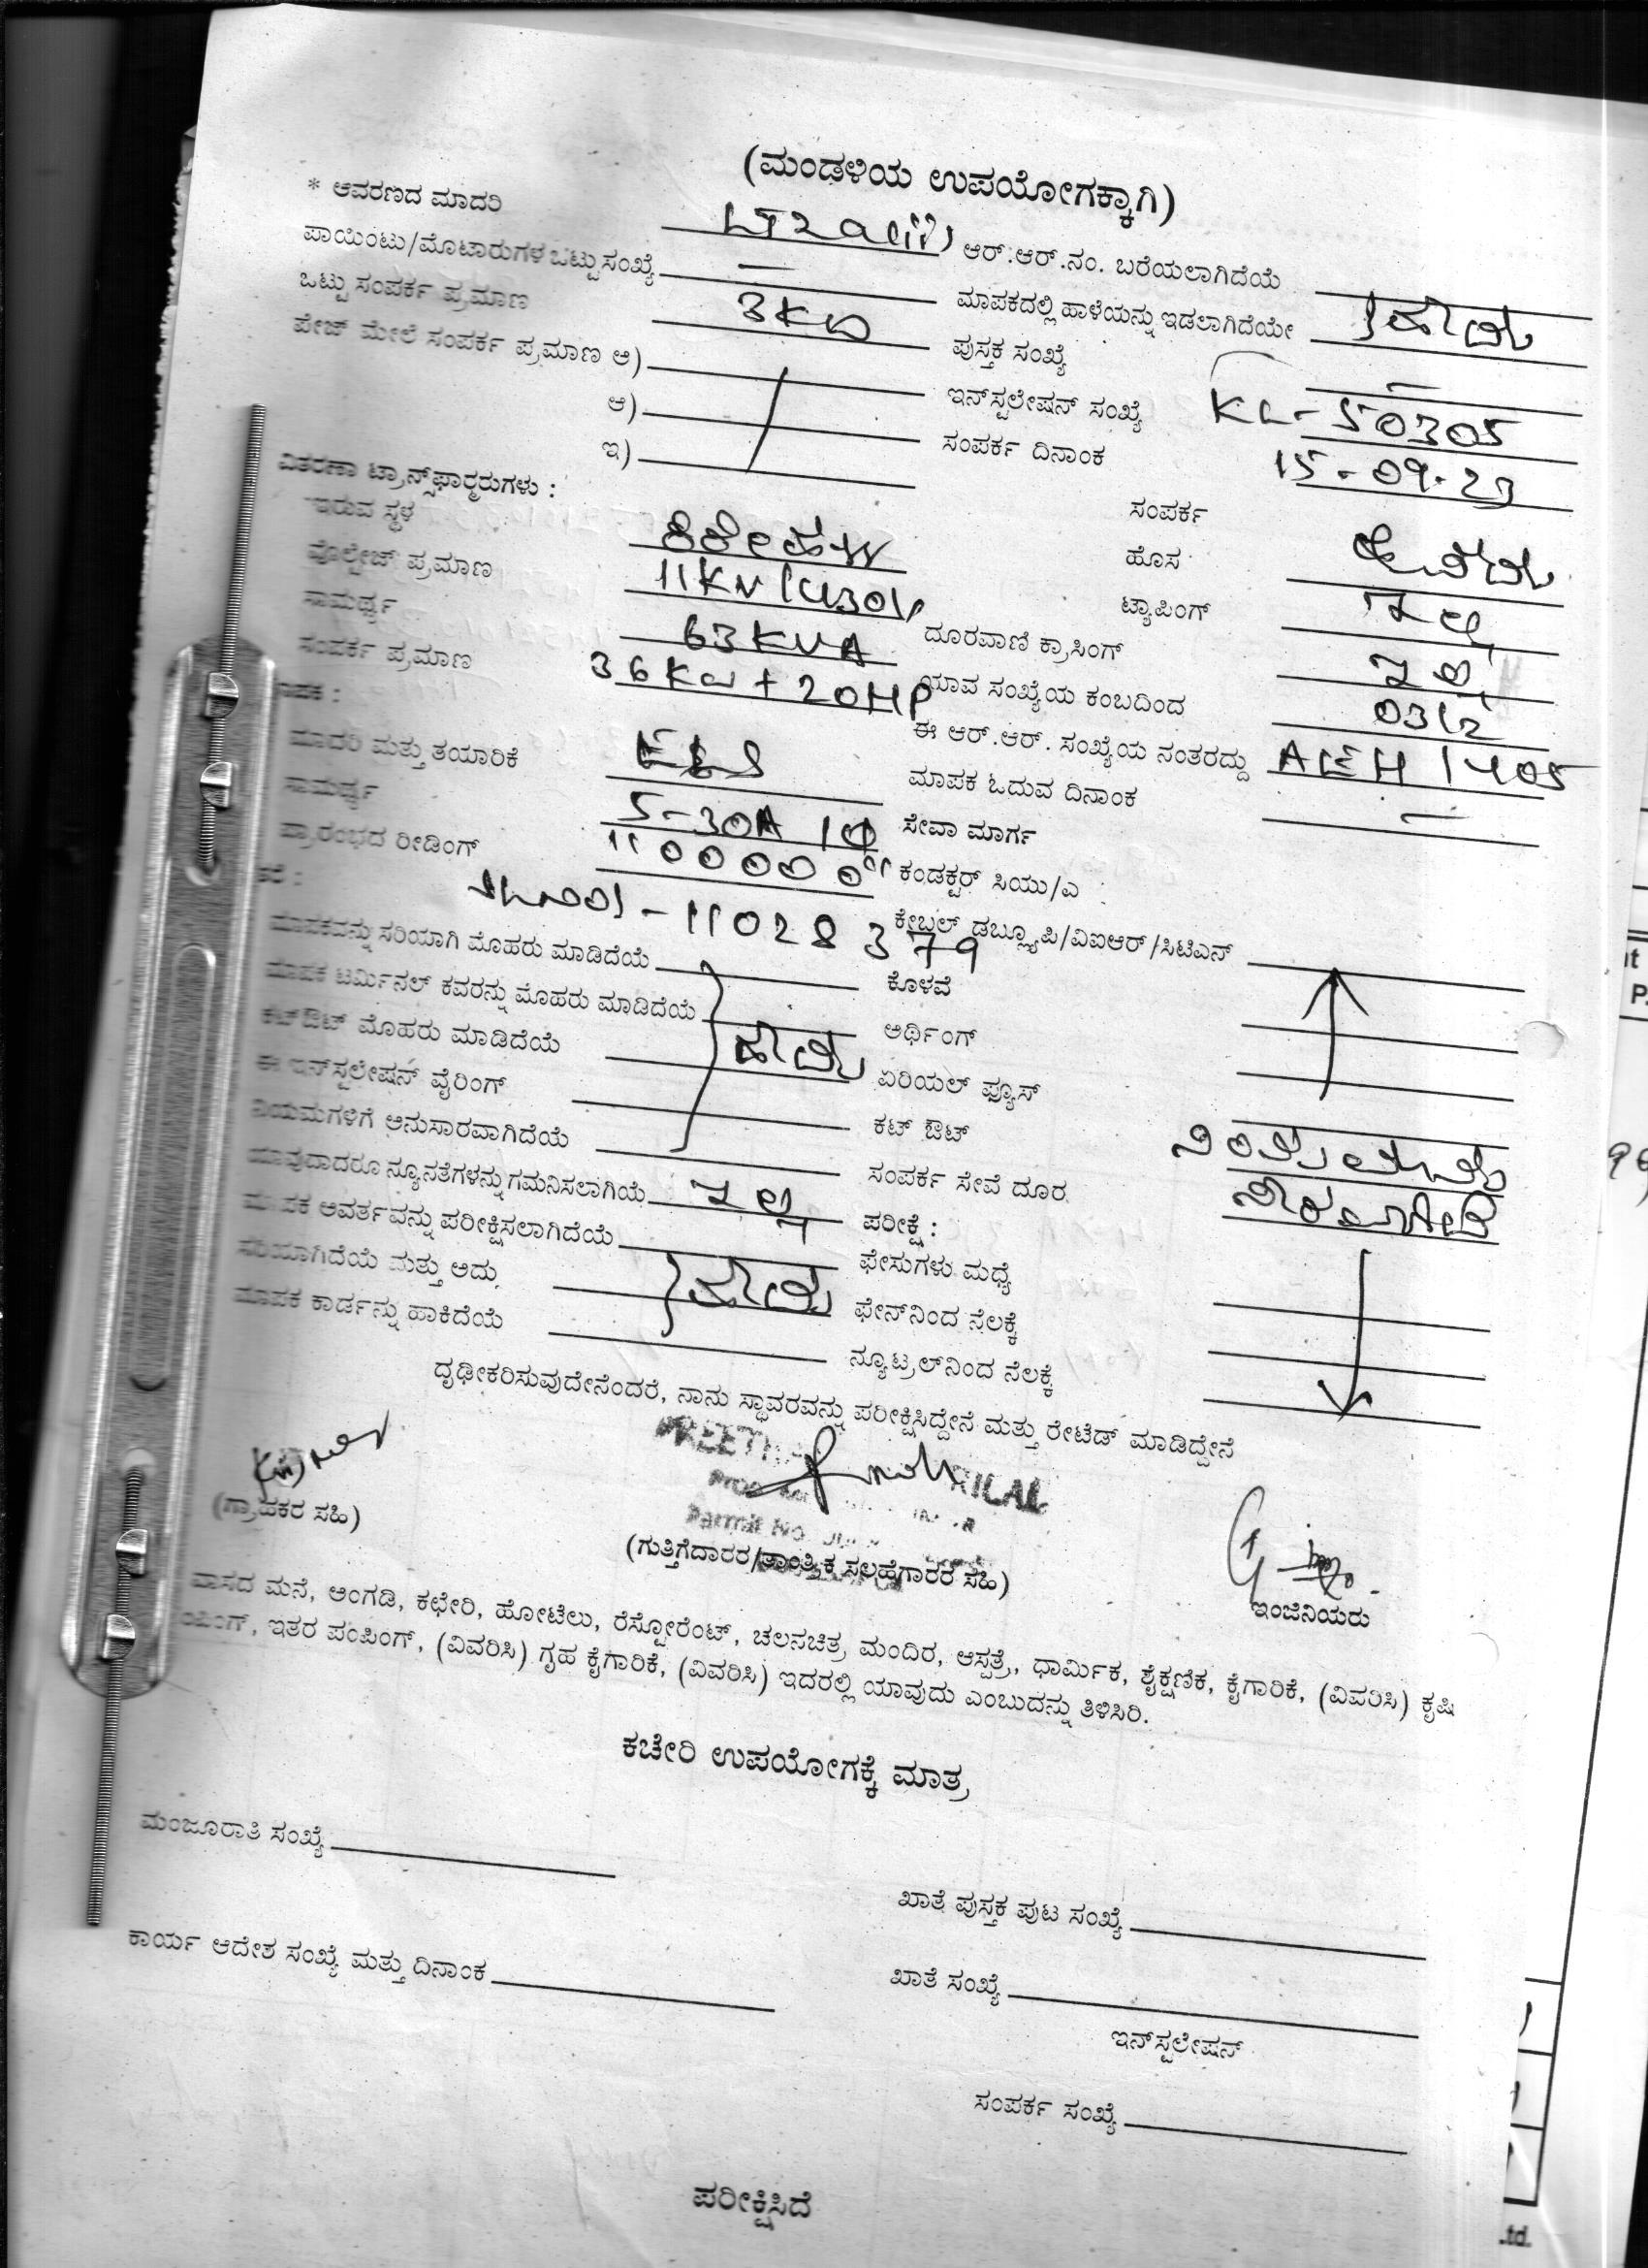 (ಮಂಡಳಿಯ ಉಪಯೋಗಕ್ಕಾಗಿ)
* ಆವರಣದ ಮಾದರಿ LT2a(ii) ಆರ್.ಆರ್.ನಂ. ಬರೆಯಲಾಗಿದೆಯೆ
ಪಾಯಿಂಟು/ಮೊಟಾರುಗಳ ಒಟ್ಟು ಸಂಖ್ಯೆ — ಮಾಪಕದಲ್ಲಿ ಹಾಳೆಯನ್ನು ಇಡಲಾಗಿದೆಯೇ ಹೌದು
ಒಟ್ಟು ಸಂಪರ್ಕ ಪ್ರಮಾಣ 3KW ಪುಸ್ತಕ ಸಂಖ್ಯೆ —
ಪೇಜ್ ಮೇಲೆ ಸಂಪರ್ಕ ಪ್ರಮಾಣ ಅ) ಇನ್‌ಸ್ಟಲೇಷನ್ ಸಂಖ್ಯೆ KL-50305
ಆ) ಸಂಪರ್ಕ ದಿನಾಂಕ 15-09-23
ಇ)
ವಿತರಣಾ ಟ್ರಾನ್ಸ್‌ಫಾರ್ಮರುಗಳು : ಸಂಪರ್ಕ
ಇರುವ ಸ್ಥಳ ಹೊಸ ಹೌದು
ವೊಲ್ಟೇಜ್ ಪ್ರಮಾಣ 11KV/430V ಟ್ಯಾಪಿಂಗ್ ಇಲ್ಲ
ಸಾಮರ್ಥ್ಯ 63KVA ದೂರವಾಣಿ ಕ್ರಾಸಿಂಗ್ ಇಲ್ಲ
ಸಂಪರ್ಕ ಪ್ರಮಾಣ 36KW + 20HP ಯಾವ ಸಂಖ್ಯೆಯ ಕಂಬದಿಂದ 03/2
ಮಾಪಕ : ಈ ಆರ್.ಆರ್. ಸಂಖ್ಯೆಯ ನಂತರದ್ದು AEH 1405
ಮಾದರಿ ಮತ್ತು ತಯಾರಿಕೆ ಮಾಪಕ ಓದುವ ದಿನಾಂಕ —
ಸಾಮರ್ಥ್ಯ 5-30A 1Φ ಸೇವಾ ಮಾರ್ಗ
ಪ್ರಾರಂಭದ ರೀಡಿಂಗ್ ಕಂಡಕ್ಟರ್ ಸಿಯು/ಎ :
11028379 ಕೇಬಲ್ ಡಬ್ಲ್ಯೂಪಿ/ವಿಐಆರ್/ಸಿಟಿಎಸ್
ಮಾಪಕವನ್ನು ಸರಿಯಾಗಿ ಮೊಹರು ಮಾಡಿದೆಯೆ ಕೊಳವೆ
ಮಾಪಕ ಟರ್ಮಿನಲ್ ಕವರನ್ನು ಮೊಹರು ಮಾಡಿದೆಯೆ ಅರ್ಥಿಂಗ್
ಕಟ್‌ಔಟ್ ಮೊಹರು ಮಾಡಿದೆಯೆ ಹೌದು ಏರಿಯಲ್ ಫ್ಯೂಸ್
ಈ ಇನ್‌ಸ್ಟಲೇಷನ್ ವೈರಿಂಗ್ ಕಟ್ ಔಟ್
ನಿಯಮಗಳಿಗೆ ಅನುಸಾರವಾಗಿದೆಯೆ ಸಂಪರ್ಕ ಸೇವೆ ದೂರ
ಯಾವುದಾದರೂ ನ್ಯೂನತೆಗಳನ್ನು ಗಮನಿಸಲಾಗಿಯೆ ಇಲ್ಲ ಪರೀಕ್ಷೆ :
ಮಾಪಕ ಆವರ್ತವನ್ನು ಪರೀಕ್ಷಿಸಲಾಗಿದೆಯೆ ಫೇಸುಗಳು ಮಧ್ಯೆ
ಸರಿಯಾಗಿದೆಯೆ ಮತ್ತು ಅದು ಹೌದು ಫೇಸ್‌ನಿಂದ ನೆಲಕ್ಕೆ
ಮಾಪಕ ಕಾರ್ಡನ್ನು ಹಾಕಿದೆಯೆ ನ್ಯೂಟ್ರಲ್‌ನಿಂದ ನೆಲಕ್ಕೆ
ದೃಢೀಕರಿಸುವುದೇನೆಂದರೆ, ನಾನು ಸ್ಥಾವರವನ್ನು ಪರೀಕ್ಷಿಸಿದ್ದೇನೆ ಮತ್ತು ರೇಟೆಡ್ ಮಾಡಿದ್ದೇನೆ
Permit No.
(ಗ್ರಾಹಕರ ಸಹಿ)
(ಗುತ್ತಿಗೆದಾರರ/ತಾಂತ್ರಿಕ ಸಲಹೆಗಾರರ ಸಹಿ)
ಇಂಜಿನಿಯರು
ವಾಸದ ಮನೆ, ಅಂಗಡಿ, ಕಛೇರಿ, ಹೋಟೆಲು, ರೆಸ್ಟೋರೆಂಟ್, ಚಲನಚಿತ್ರ ಮಂದಿರ, ಆಸ್ಪತ್ರೆ, ಧಾರ್ಮಿಕ, ಶೈಕ್ಷಣಿಕ, ಕೈಗಾರಿಕೆ, (ವಿವರಿಸಿ) ಕೃಷಿ
ಪಂಪಿಂಗ್, ಇತರ ಪಂಪಿಂಗ್, (ವಿವರಿಸಿ) ಗೃಹ ಕೈಗಾರಿಕೆ, (ವಿವರಿಸಿ) ಇದರಲ್ಲಿ ಯಾವುದು ಎಂಬುದನ್ನು ತಿಳಿಸಿರಿ.
ಕಚೇರಿ ಉಪಯೋಗಕ್ಕೆ ಮಾತ್ರ
ಮಂಜೂರಾತಿ ಸಂಖ್ಯೆ
ಖಾತೆ ಪುಸ್ತಕ ಪುಟ ಸಂಖ್ಯೆ
ಕಾರ್ಯ ಆದೇಶ ಸಂಖ್ಯೆ ಮತ್ತು ದಿನಾಂಕ
ಖಾತೆ ಸಂಖ್ಯೆ
ಇನ್‌ಸ್ಟಲೇಷನ್
ಸಂಪರ್ಕ ಸಂಖ್ಯೆ
ಪರೀಕ್ಷಿಸಿದೆ